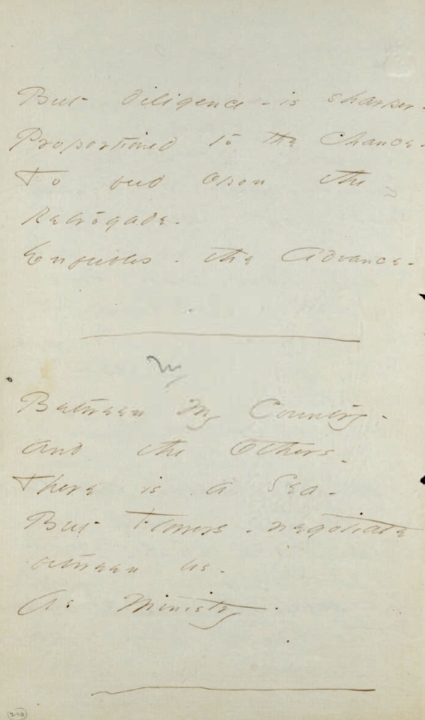 But Diligence - is sharper -
Proportioned to the Chance -
To bud upon the
Retrogade -
Ennobles - the Advance -
Between My Country -
and the Others -
There is a Sea -
But Flowers - negotiate
between us -
As Ministry -